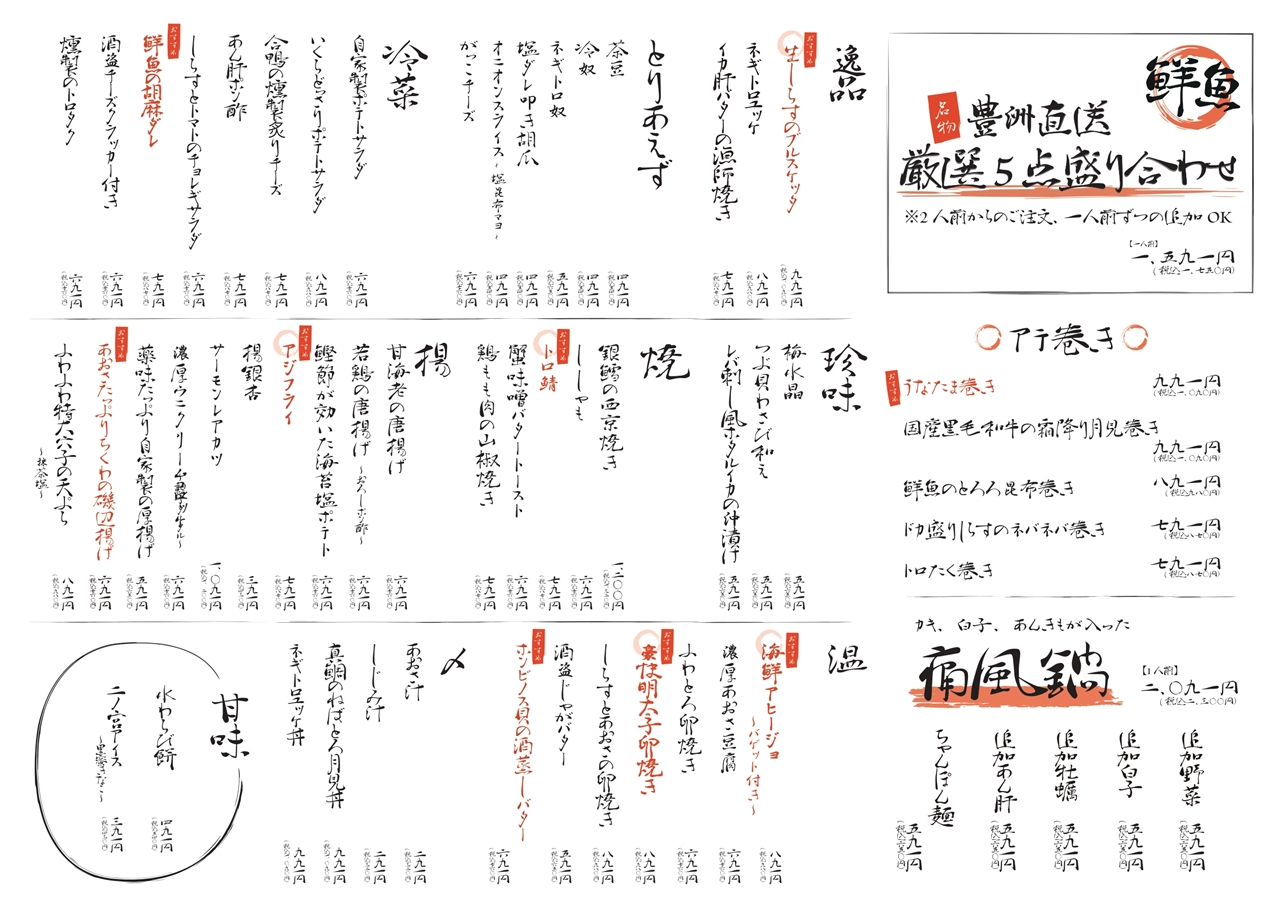 鮮魚
名物
豊洲直送
厳選5点盛り合わせ
※2人前からのご注文、一人前ずつの追加OK
【一人前】
一、五九一円
(税込一、七五〇円)
アテ巻き
おすすめ
うなたま巻き
九九一円
(税込一、〇九〇円)
国産黒毛和牛の霜降り月見巻き
九九一円
(税込一、〇九〇円)
鮮魚のとろろ昆布巻き
八九一円
(税込九八〇円)
ドカ盛りしらすのネバネバ巻き
七九一円
(税込八七〇円)
トロたく巻き
七九一円
(税込八七〇円)
カキ、白子、あんきもが入った
痛風鍋
【1人前】
二、〇九一円
(税込二、三〇〇円)
追加野菜
五九一円
(税込六五〇円)
追加白子
五九一円
(税込六五〇円)
追加牡蠣
五九一円
(税込六五〇円)
追加あん肝
五九一円
(税込六五〇円)
ちゃんぽん麺
五九一円
(税込六五〇円)
逸品
おすすめ
生しらすのブルスケッタ
九九一円
ネギトロユッケ
八九一円
イカ肝バターの漁師焼き
七九一円
とりあえず
茶豆
四九一円
冷奴
四九一円
ネギトロ奴
五九一円
塩ダレ叩き胡瓜
四九一円
オニオンスライス~塩昆布マヨ~
四九一円
がっこチーズ
四九一円
冷菜
自家製ポテトサラダ
六九一円
いくらどっさりポテトサラダ
八九一円
合鴨の燻製炙りチーズ
七九一円
あん肝ポン酢
七九一円
しらすとトマトのチョレギサラダ
六九一円
おすすめ
鮮魚の胡麻ダレ
七九一円
酒盗チーズクラッカー付き
六九一円
燻製のトロタク
六九一円
珍味
梅水晶
五九一円
つぶ貝わさび和え
五九一円
レバ刺し風ホタルイカの沖漬け
五九一円
焼
銀鱈の西京焼き
一、二〇〇円
ししゃも
六九一円
おすすめ
トロ鯖
七九一円
蟹味噌バタートースト
六九一円
鶏もも肉の山椒焼き
七九一円
揚
甘海老の唐揚げ
六九一円
若鶏の唐揚げ~おろしポン酢~
六九一円
鰹節が効いた海苔塩ポテト
六九一円
おすすめ
アジフライ
七九一円
揚銀杏
三九一円
サーモンレアカツ
一、〇九一円
濃厚ウニクリーム
六九一円
薬味たっぷり自家製の厚揚げ
五九一円
おすすめ
あおさたっぷりちくわの磯辺揚げ
六九一円
ふわふわ特大穴子の天ぷら
~抹茶塩~
八九一円
温
おすすめ
海鮮アヒージョ
~バゲット付き~
八九一円
濃厚あおさ豆腐
六九一円
ふわとろ卵焼き
六九一円
おすすめ
豪快明太子卵焼き
八九一円
しらすとあおさの卵焼き
八九一円
酒盗じゃがバター
五九一円
おすすめ
ホンビノス貝の酒蒸しバター
六九一円
〆
あおさ汁
二九一円
しじみ汁
二九一円
真鯛のねばとろ月見丼
九九一円
ネギトロユッケ丼
九九一円
甘味
水わらび餅
四九一円
二ノ宮アイス
~黒蜜きなこ~
三九一円